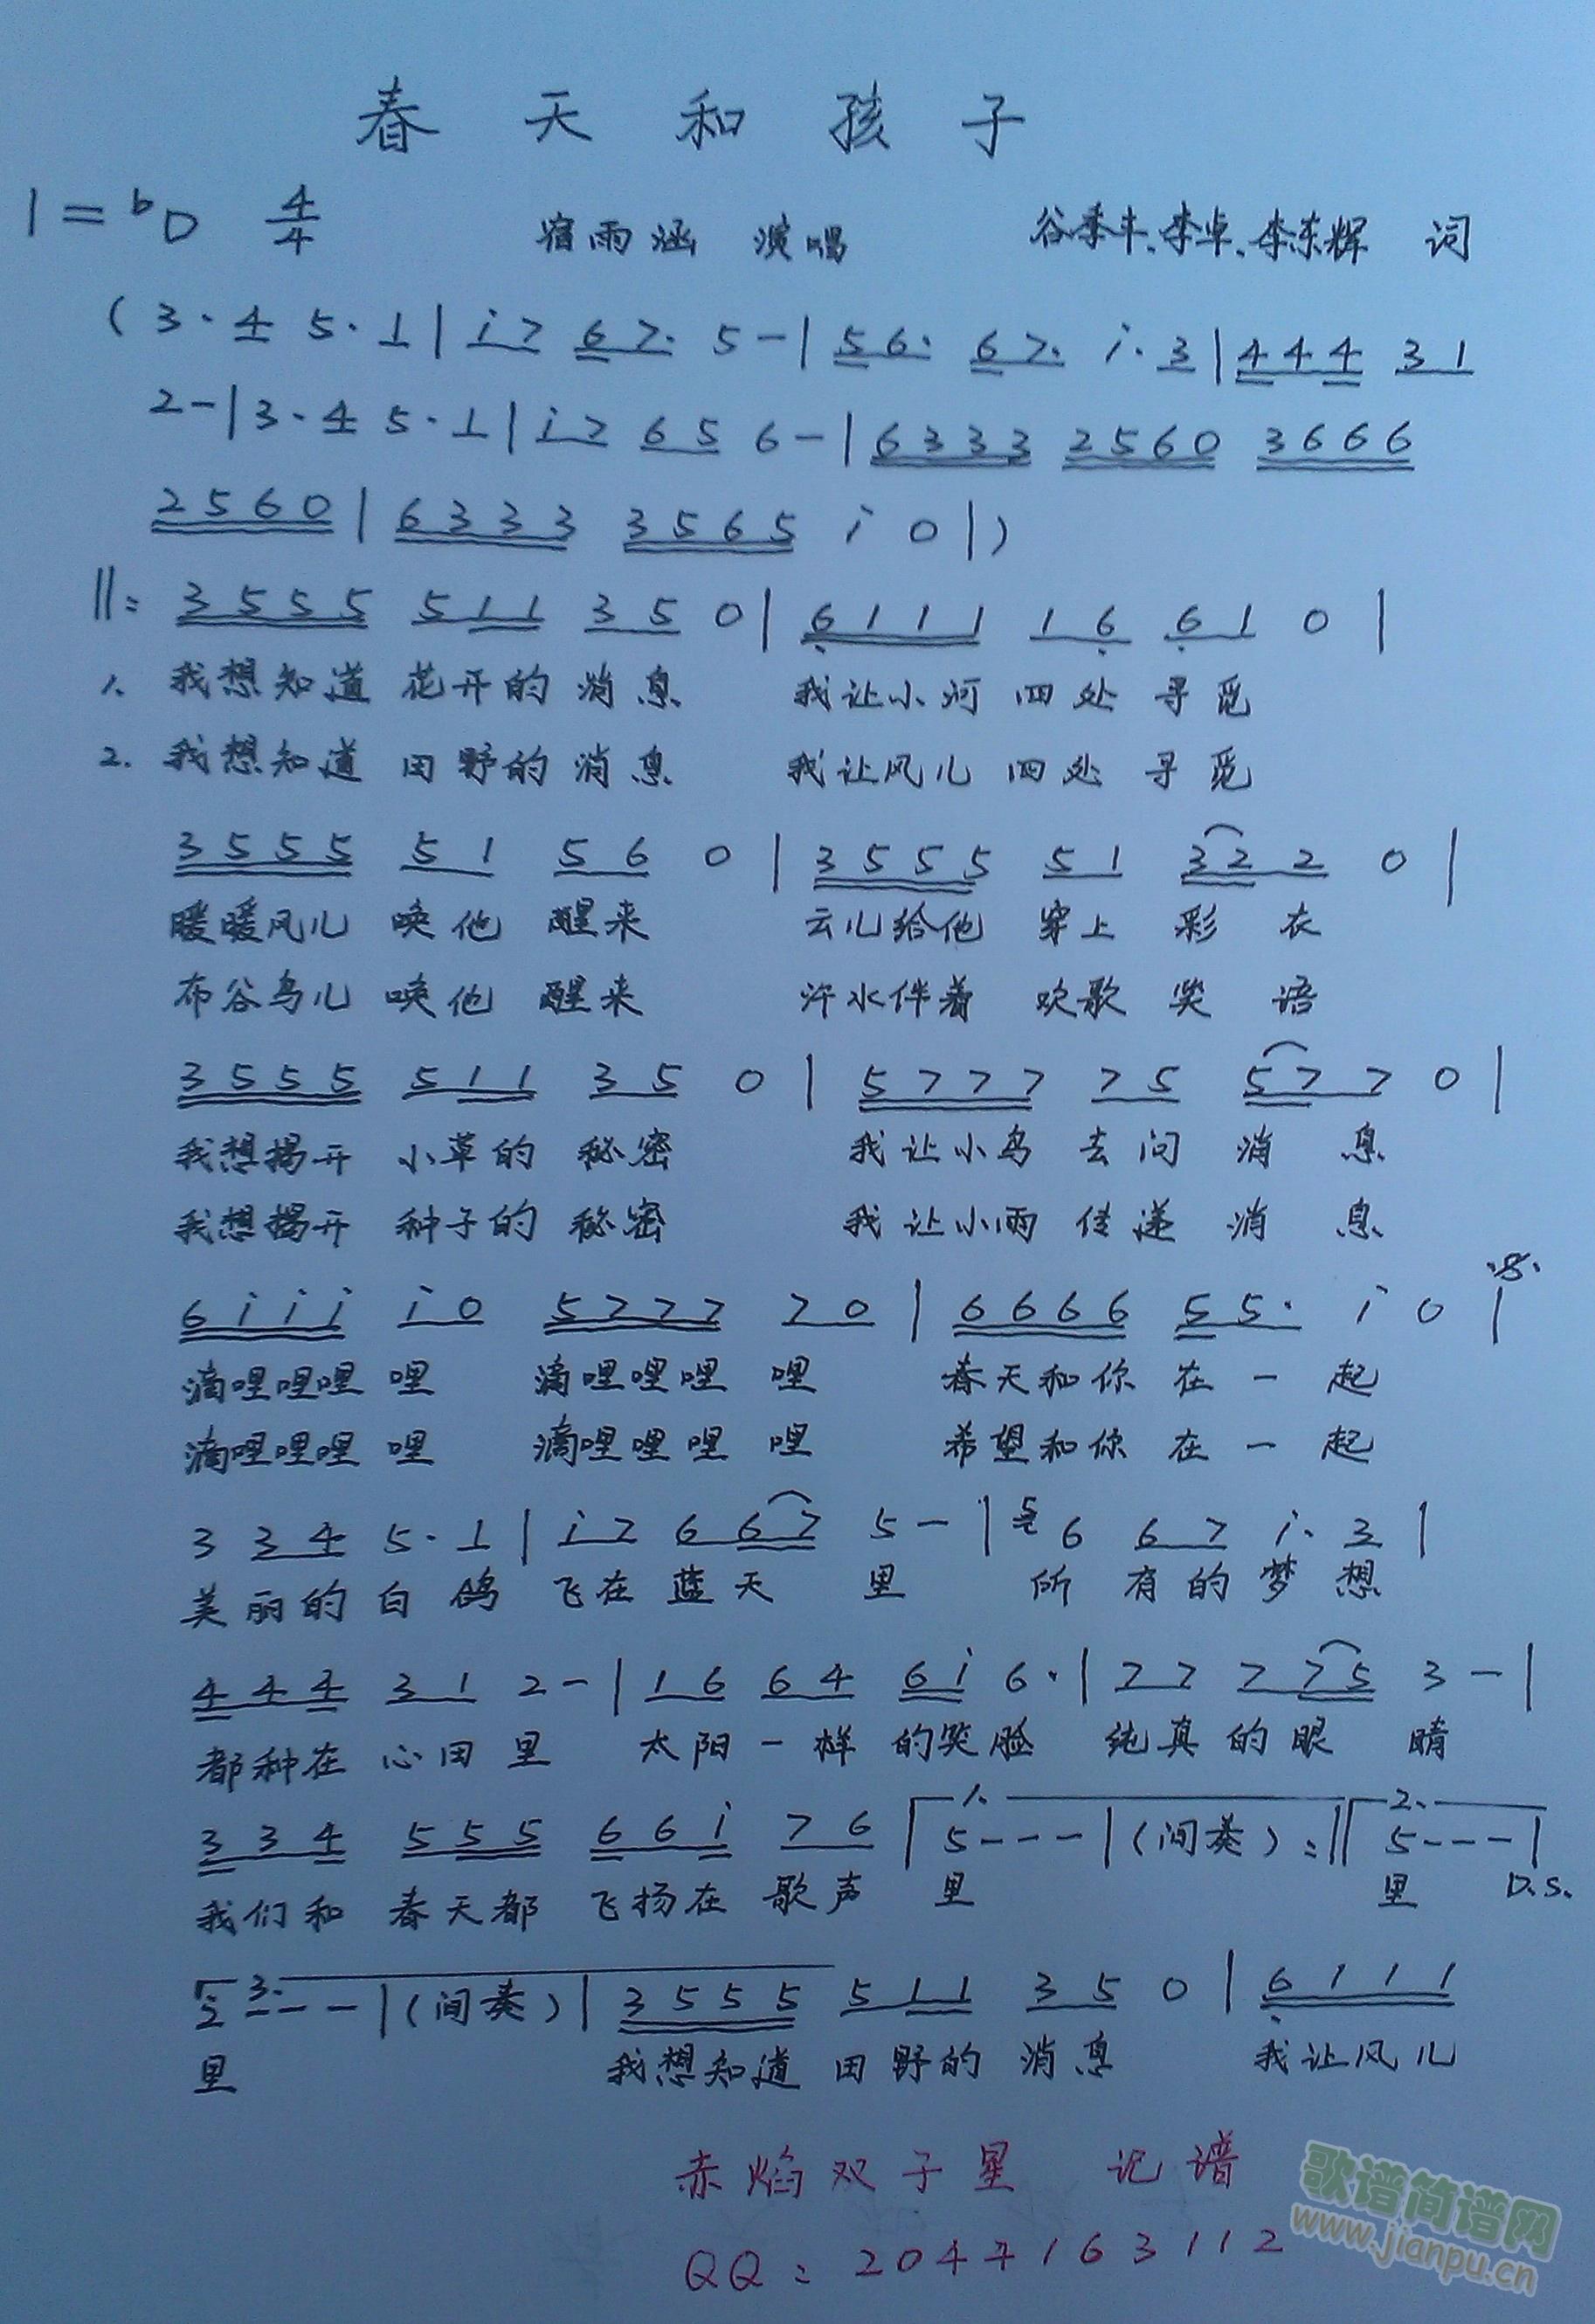 春天和孩子
1=♭D 4/4 宿雨涵 演唱 谷季丰、李卓、李东辉 词
(3·4 5·1|i7 67· 5-|56· 67· i·3|444 31
2-|3·4 5·1|i7 65 6-|6333 2560 3666
2560|6333 3565 i 0|)
‖: 3555 511 35 0|6111 16 61 0|
1. 我想知道 花开的 消息 我让小河 四处 寻觅
2. 我想知道 田野的 消息 我让风儿 四处 寻觅
3555 51 56 0|3555 51 322 0|
暖暖风儿 唤他 醒来 云儿给他 穿上 彩衣
布谷鸟儿 唤他 醒来 汗水伴着 欢歌 笑语
3555 511 35 0|5777 75 577 0|
我想揭开 小草的 秘密 我让小鸟 去问 消息
我想揭开 种子的 秘密 我让小雨 传递 消息
6iii i0 5777 70|6666 55· i 0|
滴哩哩哩 哩 滴哩哩哩 哩 春天和你 在一起
滴哩哩哩 哩 滴哩哩哩 哩 希望和你 在一起
3 34 5·1|i7 667 5-|5 6 67 i·3|
美丽的白鸽 飞在蓝天 里 所有的梦想
444 31 2-|16 64 6i 6·|77 775 3-|
都种在 心田里 太阳一样 的笑脸 纯真的眼 睛
334 555 66i 76 1. 5---|(间奏):‖ 2. 5---|
我们和 春天都 飞扬在 歌声 里 里 D.S.
3. 5---|(间奏)|3555 511 35 0|6111
里 我想知道 田野的 消息 我让风儿
赤焰双子星 记谱
QQ:2047163112
歌谱简谱网
www.jianpu.cn